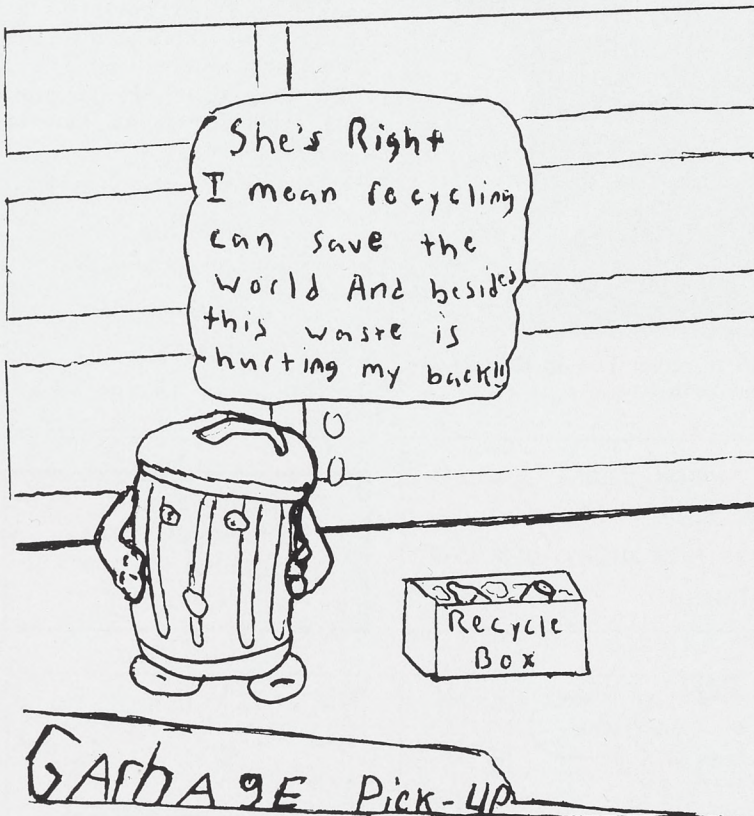 She's Right
I mean recycling
can save the
world And besides
this waste is
hurting my back!!
Recycle
Box
GArbAgE Pick-UP